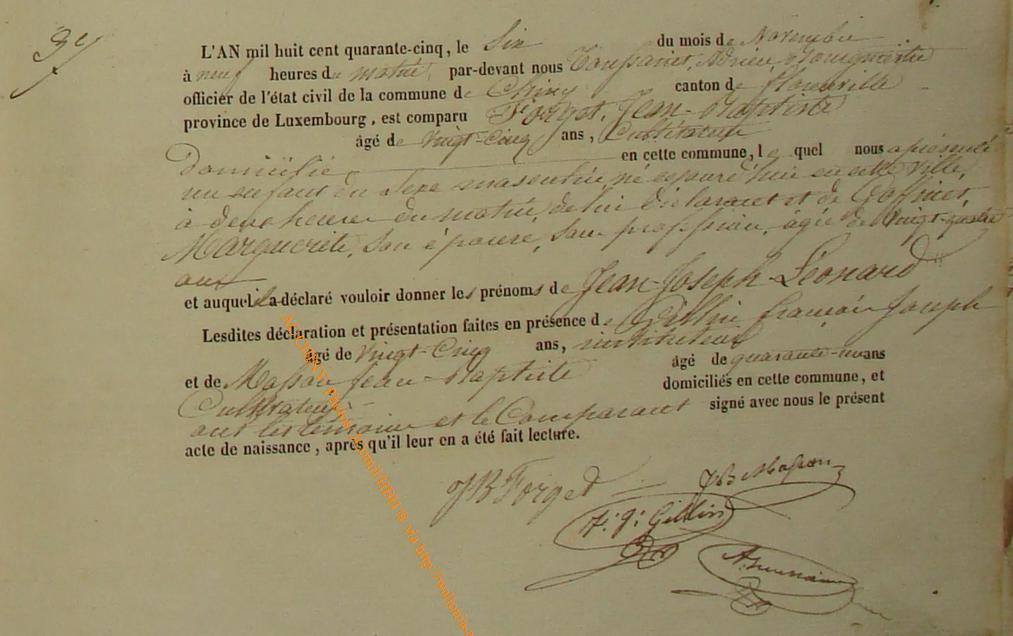 39
L'AN mil huit cent quarante-cinq, le Six du mois de Novembre
à neuf heures du matin, par-devant nous Toussaint, Adrien
officier de l'état civil de la commune de Chiny canton de florenville
province de Luxembourg, est comparu Forget, Jean-Baptiste
âgé de Vingt-Cinq ans, Cultivateur
Domicilié en cette commune, le quel nous a présenté
un enfant du Sexe masculin, né aujourd'hui en cette Ville,
à deux heures du matin, de lui déclarant et de Goffinet,
Marguerite, son épouse, sans profession, âgée de Vingt-quatre
ans
et auquel il a déclaré vouloir donner les prénoms de Jean-Joseph-Léonard
Lesdites déclaration et présentation faites en présence de Gillin françois Joseph
âgé de Vingt-Cinq ans, instituteur
et de Masson Jean-Baptiste âgé de quarante-un ans
Cultivateur domiciliés en cette commune, et
ont les témoins et le Comparant signé avec nous le présent
acte de naissance, après qu'il leur en a été fait lecture.
JB Forget JB Masson
F. J. Gillin
A. Toussaint